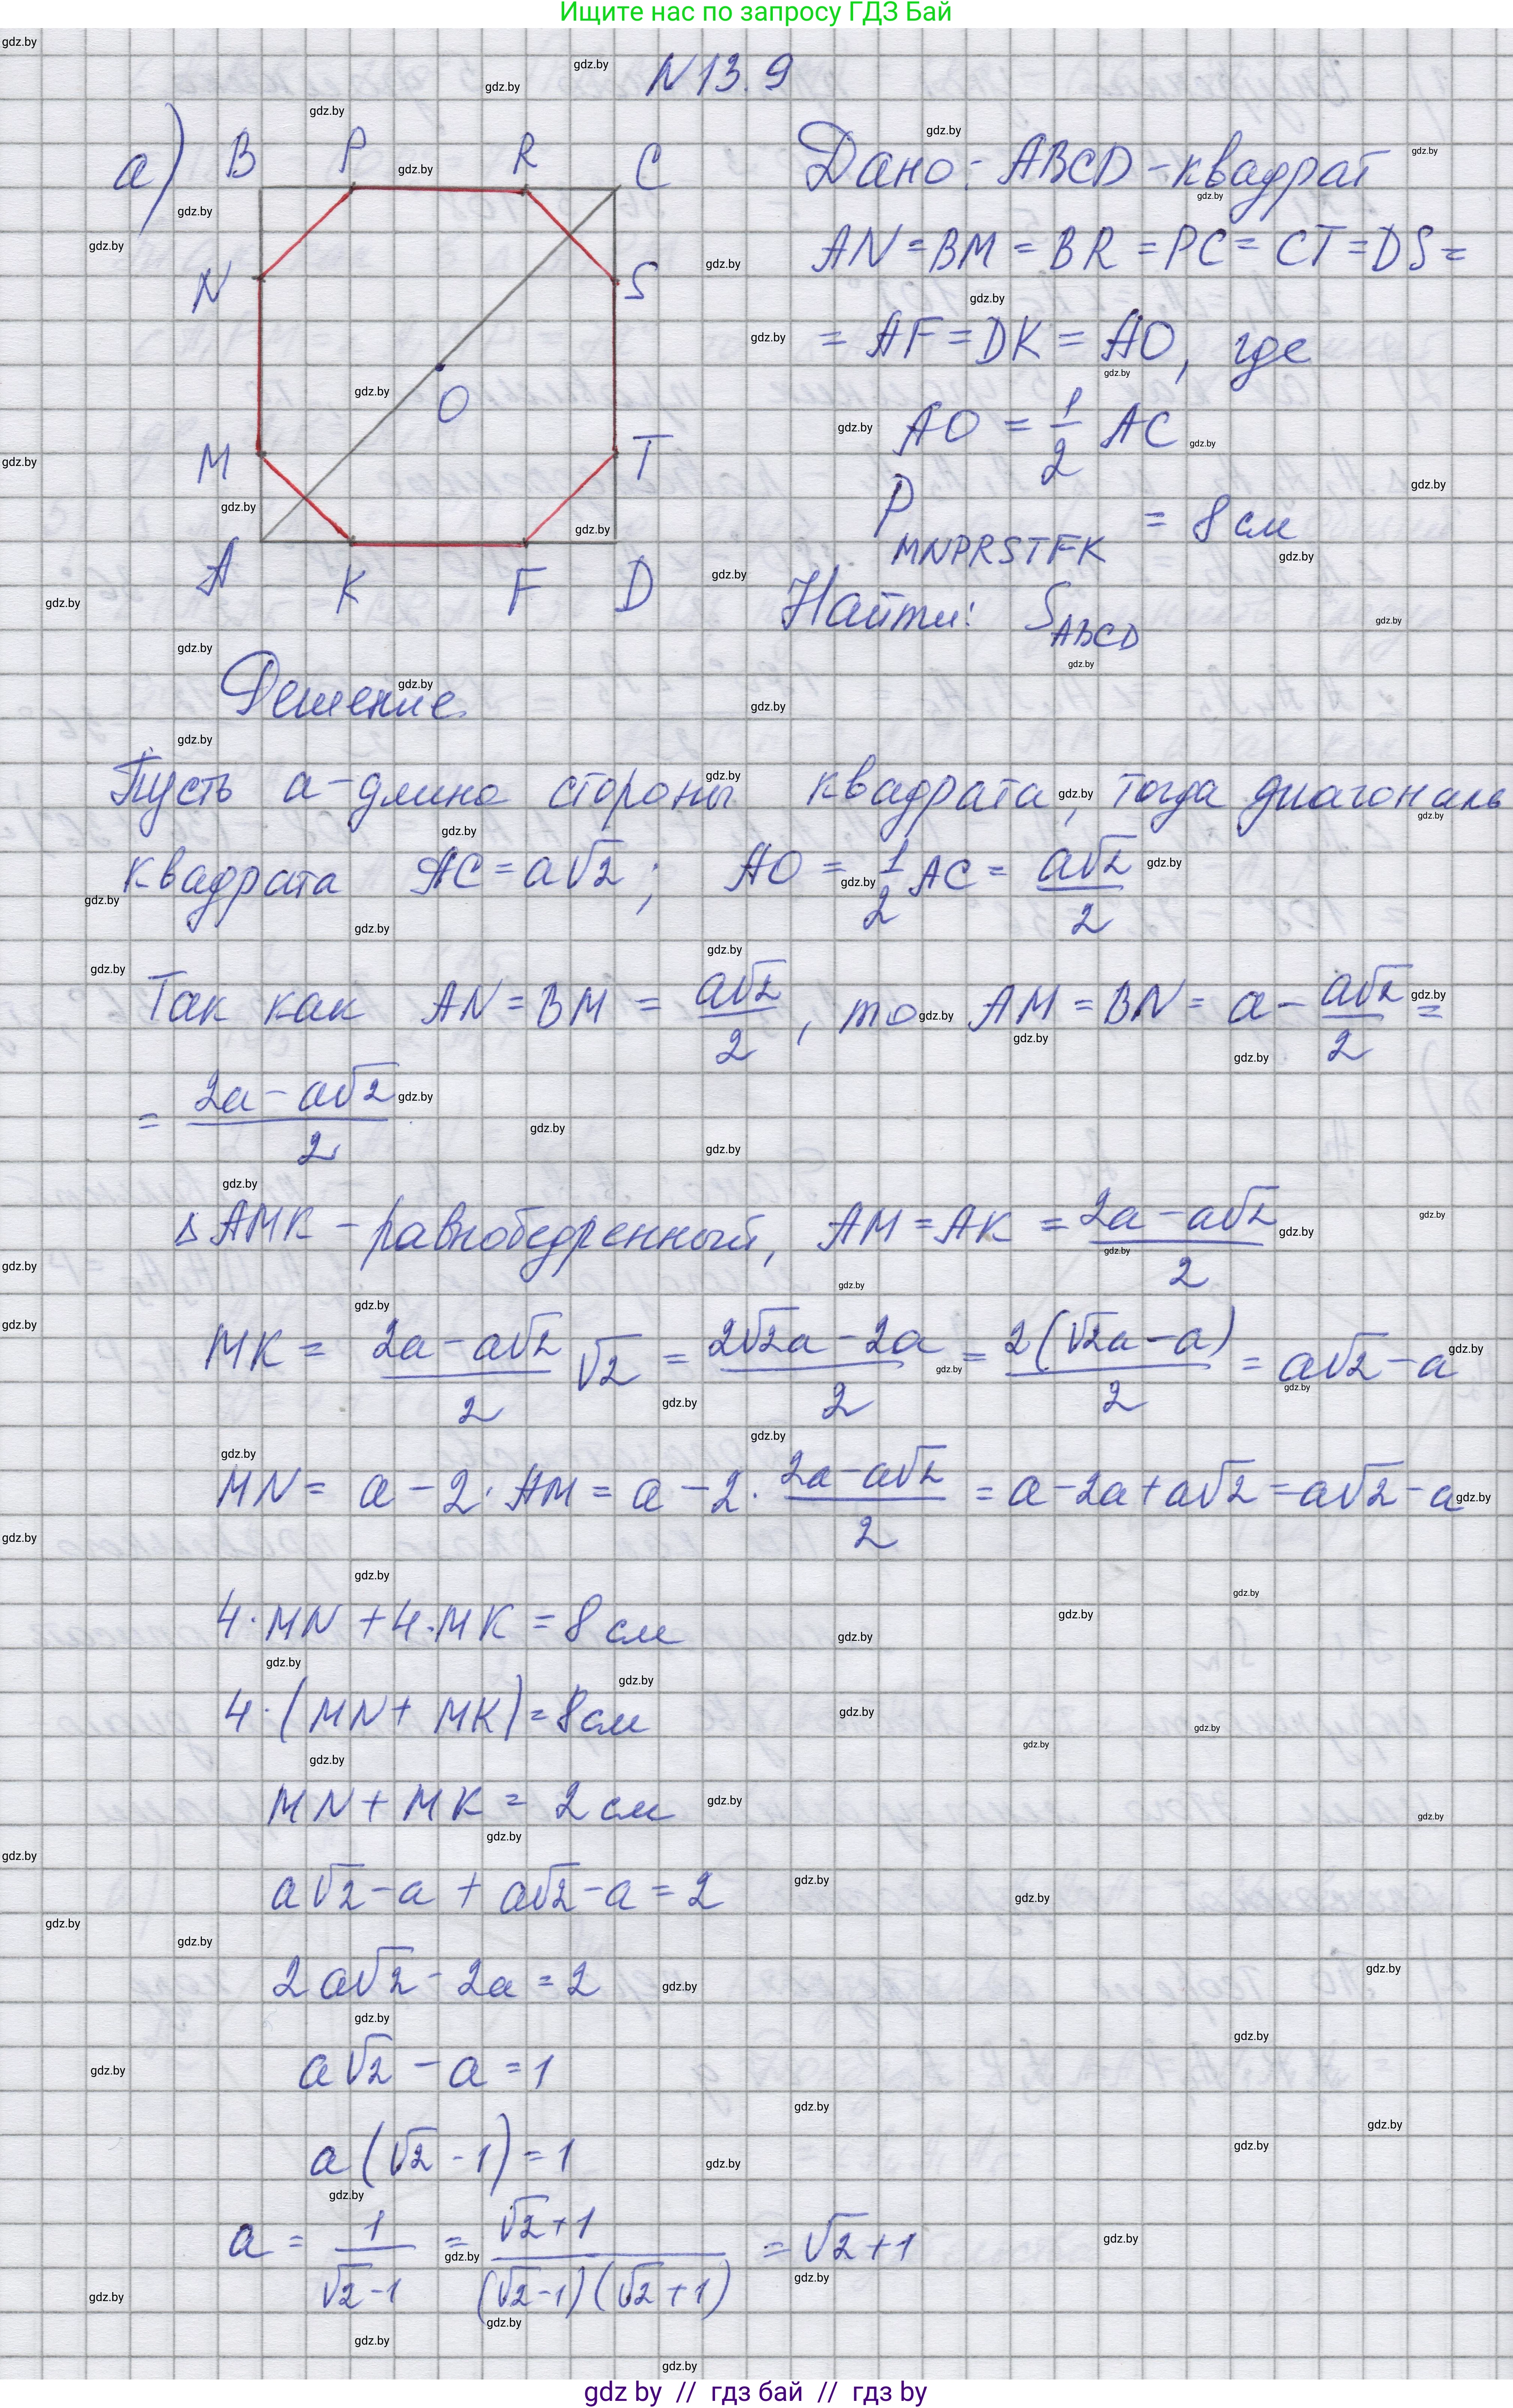 Ищите нас по запросу ГДЗ Бай
N 13.9
а) B P R C
N S
O
M T
A K F D
Дано: ABCD - квадрат
AN = BM = BR = PC = CT = DS =
= AF = DK = AO, где
AO = 1/2 AC
P MNPRSTFK = 8 см
Найти: S ABCD
Решение
Пусть a - длина стороны квадрата, тогда диагональ
квадрата AC = a√2 ; AO = 1/2 AC = a√2/2
Так как AN = BM = a√2/2, то AM = BN = a - a√2/2 =
= (2a - a√2)/2
△ AMK - равнобедренный, AM = AK = (2a - a√2)/2
MK = (2a - a√2)/2 √2 = (2√2a - 2a)/2 = 2(√2a - a)/2 = a√2 - a
MN = a - 2 · AM = a - 2 · (2a - a√2)/2 = a - 2a + a√2 = a√2 - a
4 · MN + 4 · MK = 8 см
4 · (MN + MK) = 8 см
MN + MK = 2 см
a√2 - a + a√2 - a = 2
2a√2 - 2a = 2
a√2 - a = 1
a(√2 - 1) = 1
a = 1/(√2 - 1) = (√2 + 1)/((√2 - 1)(√2 + 1)) = √2 + 1
gdz by // гдз бай // гдз by